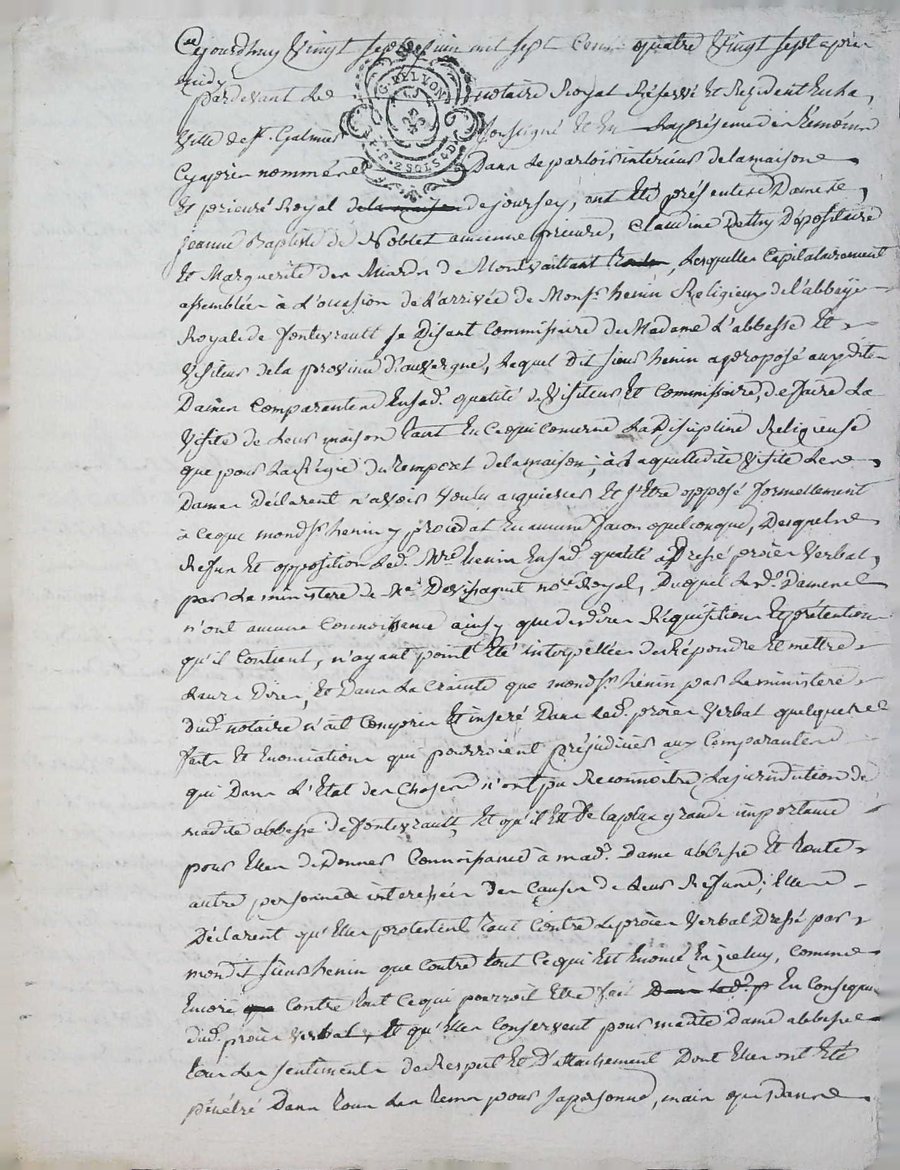 Cejourdhuy Vingt sept juin mil sept Cens quatre Vingt sept après
midy
pardevant Le notaire Royal Réservé Et Résident En La
Ville de St. Galmier soussigné Et En La présence des témoins
Cy après nommés Dans Le parloir interieur de la maison
Et prieuré Royal de la maison de jourcey, ont Eté présentes Dames
jeanne Baptiste de Noblet ancienne prieure, Claudine Dépositaire
Et Marguerite des Miards de Montvaillant, Lesquelles Capitulairement
assemblées à L'occasion de L'arrivée de Monsr. henin Religieux de L'abbaye
Royale de fontevrault se Disant Commissaire de Madame L'abbesse Et
Visiteur de la province D'auvergne, Lequel Dit sieur henin a proposé auxdites
Dames Comparantes En sad. qualité de Visiteur Et Commissaire, de faire La
Visite de Leur maison tant En Ce qui Concerne La Discipline Religieuse
que pour La Régie du temporel de la maison; à Laquelle dite Visite Les
Dames Déclarent n'avoir voulu acquiescer Et s'Etre opposé formellement
à Ceque mondsr. henin y procedat En aucune façon quelconque, Desquels
Refus Et opposition Led. henin En sad. qualité a Dressé procès Verbal,
par Le ministere de Me. Devissaguet nore. Royal, Duquel Lesd. Dames
n'ont aucune Connoissance ainsy que des dires Réquisitions Et prétentions
qu'il Contient, n'ayant point Eté interpellées de Répondre Et mettre
Leurs Dires, Et Dans La Crainte que mondsr. henin par Le ministere
dud. notaire n'ait Compris Et inseré Dans Led. procès Verbal quelques
faits Et Enonciations qui pourroient préjudicier aux Comparantes
qui Dans L'Etat des Choses n'ont pu Reconnoitre La jurisdiction de
madite abbesse de fontevrault, Et qu'il Est De la plus grande importance
pour Elles de Donner Connoissance à mad. Dame abbesse Et toute
autre personne interessée Des Causes de Leur Refus; Elles
Déclarent qu'Elles protestent tant Contre Le procès Verbal Dressé par
mondit sieur henin que Contre tout Ce qui Est Enoncé En jceluy, Comme
Encore que Contre tout Ce qui pourroit Etre fait Dans Led. p En Consequ
dud. procès Verbal, Et qu'Elles Conservent pour madite Dame abbesse
tous Les sentiments de Respect Et D'attachement Dont Elles ont Eté
pénétré Dans tous Les tems pour sa personne, mais que Dans
G. DE LYON
P.P. 2 SOLS 4 D